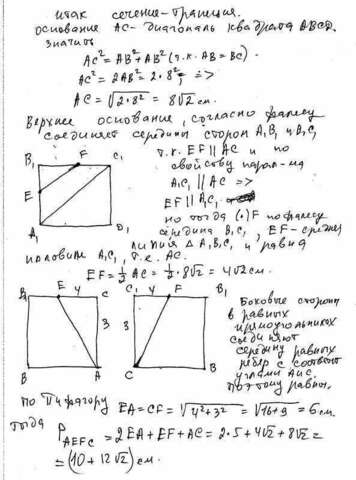 итак сечение-трапеция.
основание AC-диагональ квадрата ABCD.
значит
AC² = AB² + AB² (т.к. AB = BC).
AC² = 2AB² = 2·8², =>
AC = √2·8² = 8√2 см.
Верхнее основание, согласно фалесу
соединяет середины сторон A₁B₁ и B₁C₁
B₁ F C₁
E
A₁ D₁
т.к. EF ∥ AC и по
свойству парал-да
A₁C₁ ∥ AC =>
EF ∥ A₁C₁
но тогда (·) F по фалесу
середина B₁C₁, EF-средняя
линия Δ A₁B₁C₁ и равна
половине A₁C₁, т.е. AC.
EF = ½ AC = ½·8√2 = 4√2 см.
E 4
3
B A
C₁ 4 F B₁
3
C B
Боковые стороны
в равных
прямоугольниках
соединяют
середину равных
рёбер с соответ
углами
поэтому равны.
по Пифагору EA = CF = √4²+3² = √16+9 = 5 см.
тогда P AEFC = 2EA + EF + AC = 2·5 + 4√2 + 8√2 =
= (10 + 12√2) см.